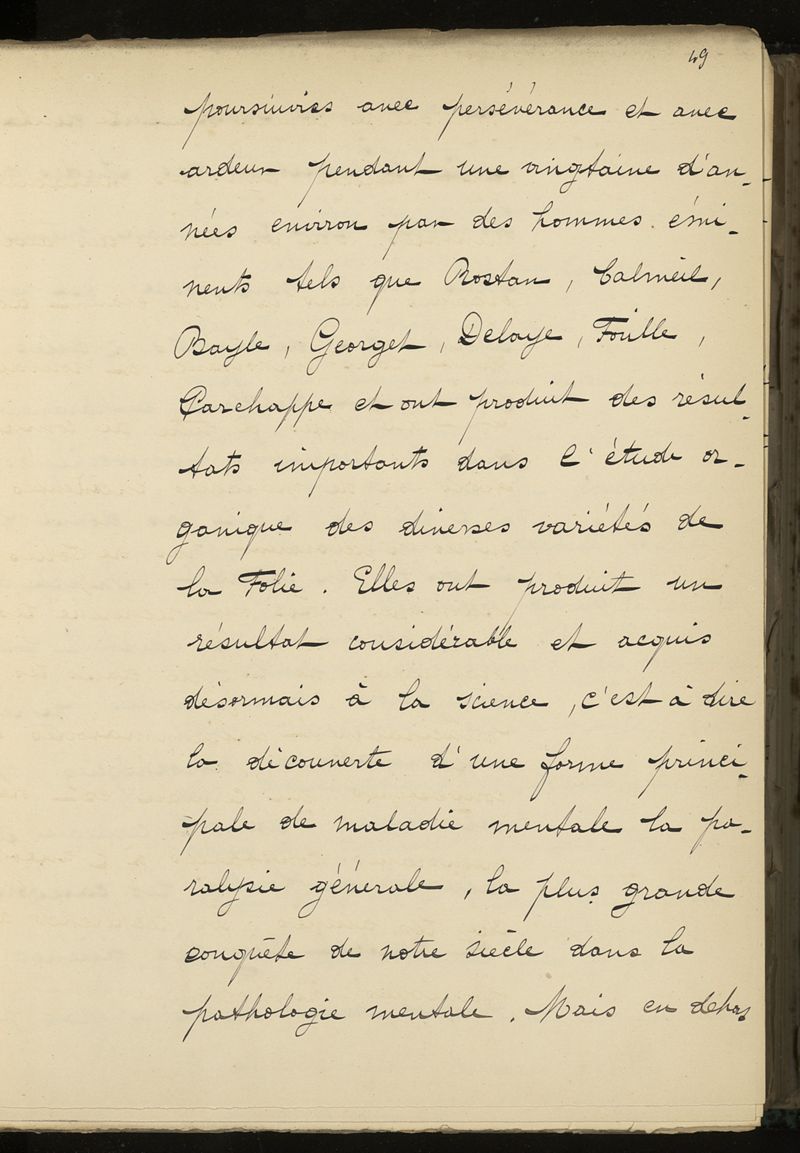 49
poursuivies avec persévérance et avec
ardeur pendant une vingtaine d'an-
nées environ par des hommes émi-
nents tels que Rostan, Calmeil,
Bayle, Georget, Delaye, Foville,
Parchappe et ont produit des résul-
tats importants dans l'étude or-
ganique des diverses variétés de
la Folie. Elles ont produit un
résultat considérable et acquis
désormais à la science, c'est à dire
la découverte d'une forme princi-
pale de maladie mentale la pa-
ralysie générale, la plus grande
conquête de notre siècle dans la
pathologie mentale. Mais en dehors